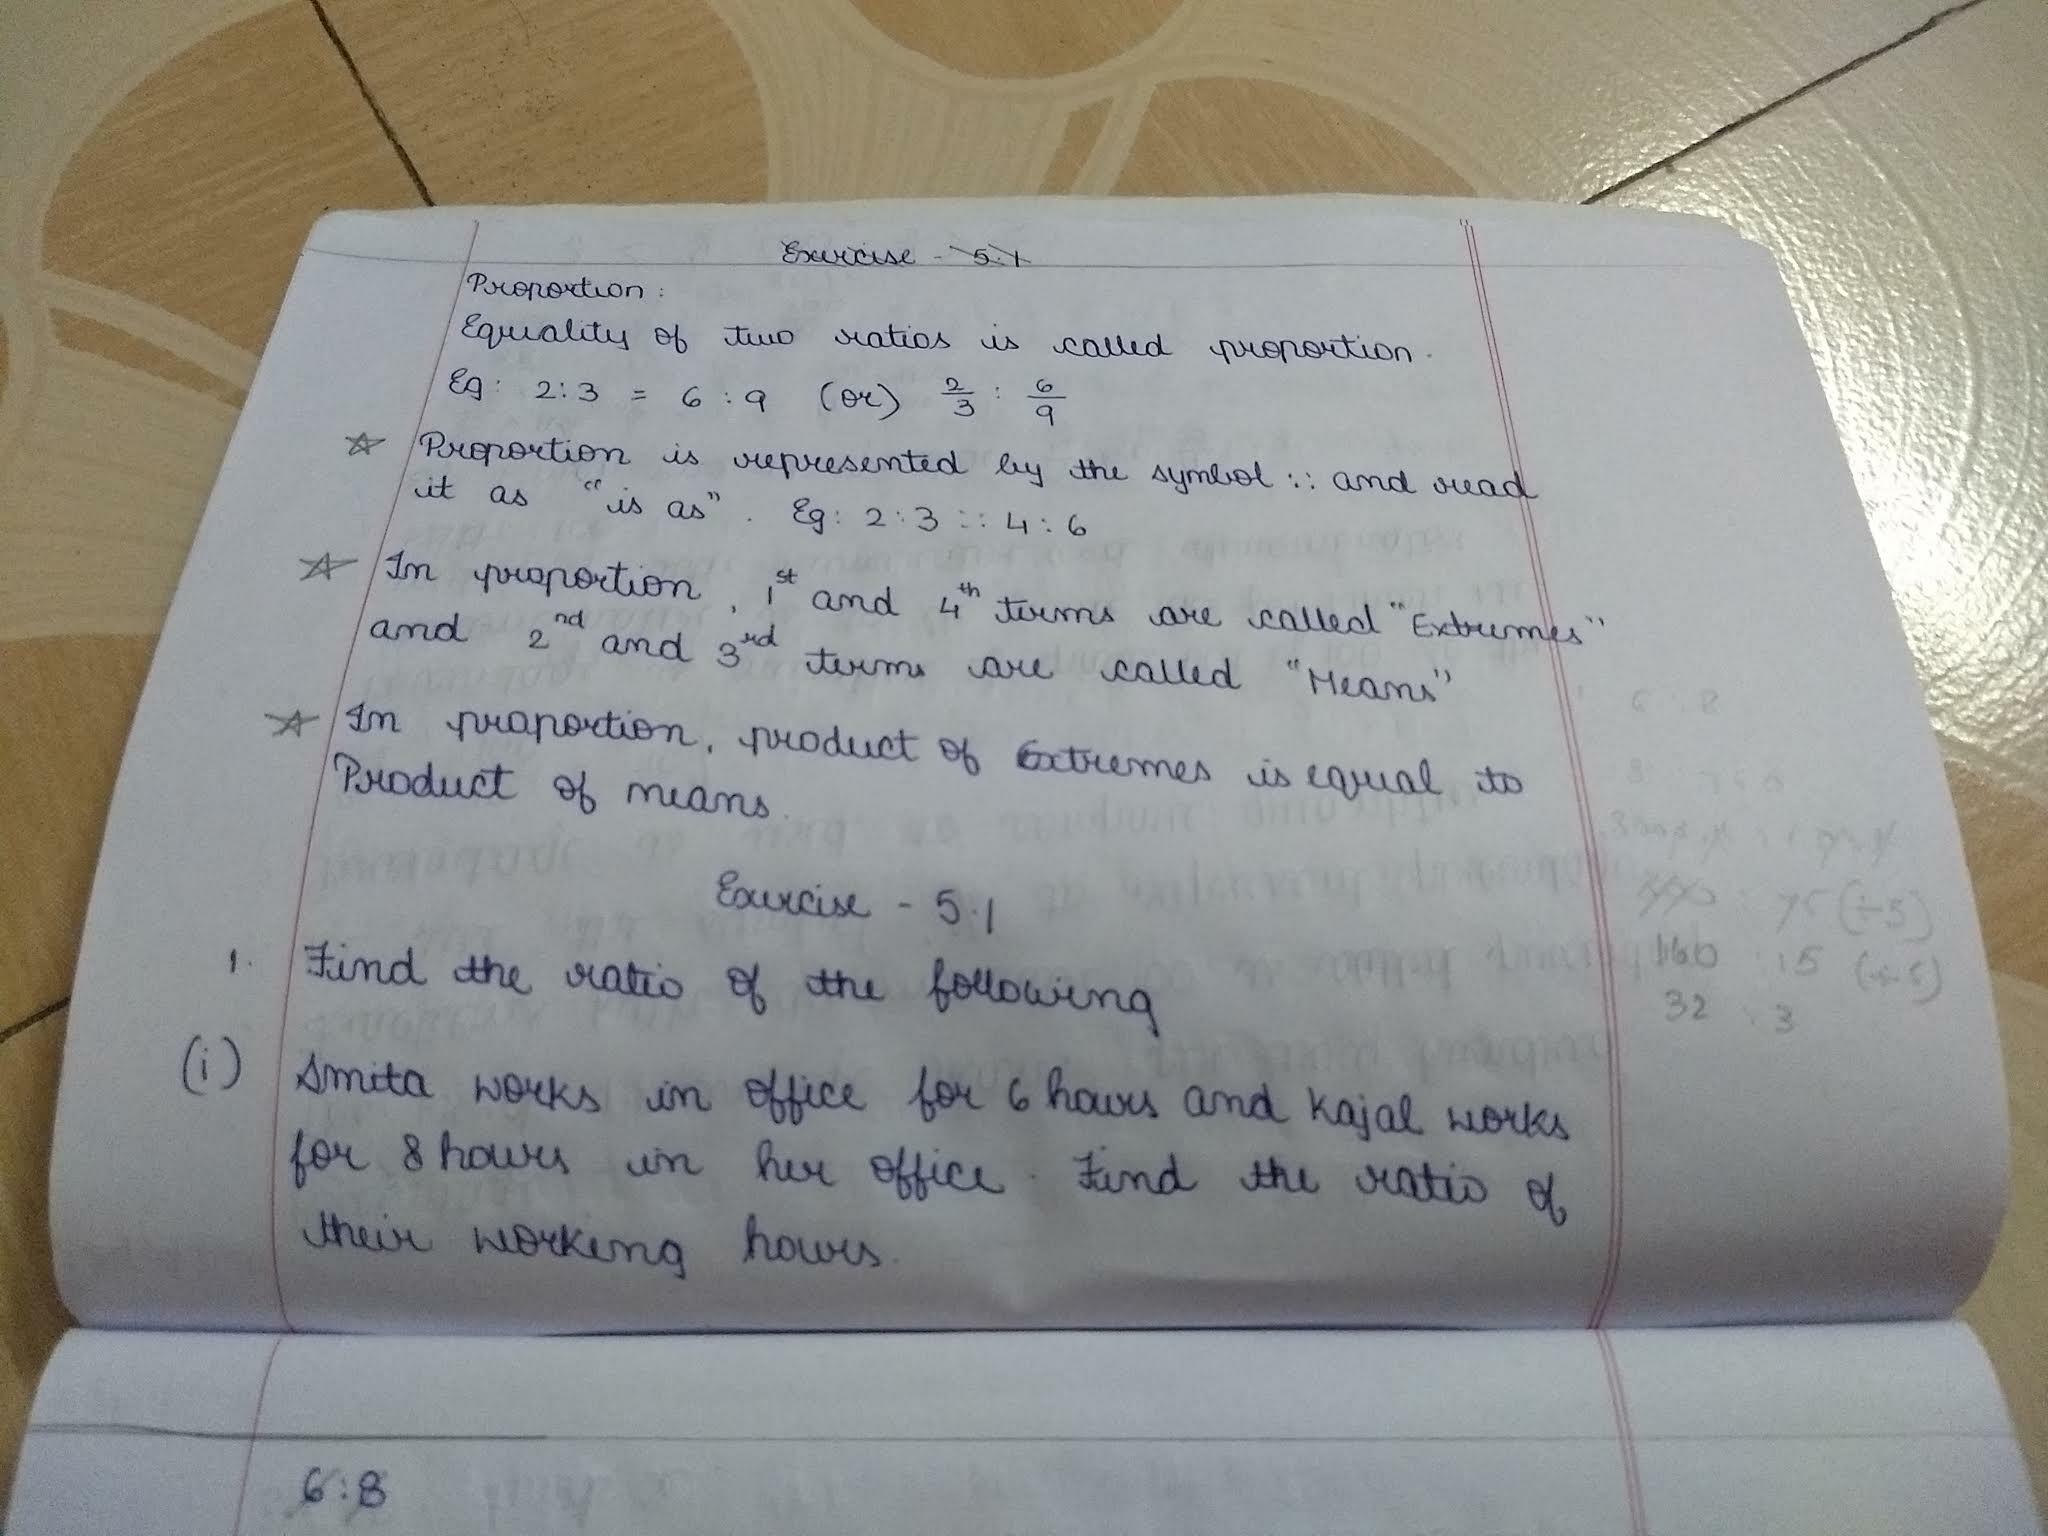 Exercise - 5.1
Proportion :
Equality of two ratios is called proportion.
Eg: 2:3 = 6:9 (or) 2/3 : 6/9
☆ Proportion is represented by the symbol :: and read
it as "is as". Eg: 2:3 :: 4:6
☆ In proportion, 1st and 4th terms are called "Extremes"
and 2nd and 3rd terms are called "Means"
☆ In proportion, product of Extremes is equal to
Product of means.
Exercise - 5.1
1. Find the ratio of the following
(i) Smita works in office for 6 hours and Kajal works
for 8 hours in her office. Find the ratio of
their working hours.
6:8
6 : 8
75 (÷5)
160 : 15 (÷5)
32 : 3